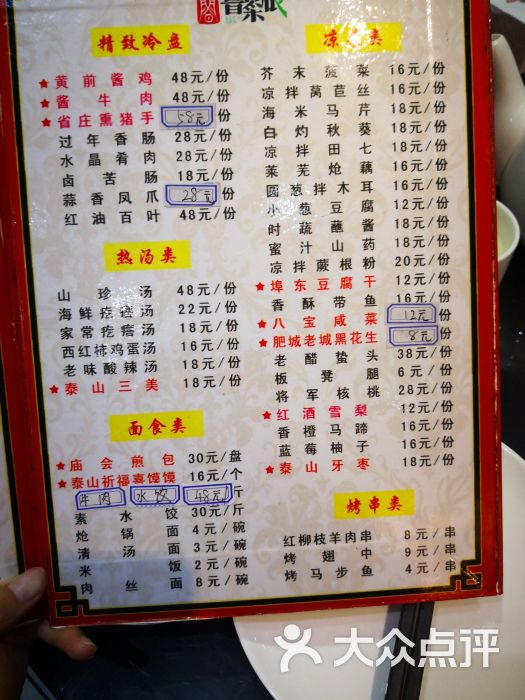 精致冷盘
★黄前酱鸡 48元/份
★酱牛肉 48元/份
★省庄熏猪手 58元/份
过年香肠 28元/份
水晶肴肉 28元/份
卤苦肠 18元/份
蒜香凤爪 28元/份
红油百叶 48元/份
热汤类
山珍汤 48元/份
海鲜疙瘩汤 22元/份
家常疙瘩汤 18元/份
西红柿鸡蛋汤 16元/份
老味酸辣汤 18元/份
★泰山三美 18元/份
面食类
★庙会煎包 30元/盘
★泰山祈福喜馍馍 16元/个
牛肉水饺 48元/斤
素水饺 30元/斤
炝锅面 4元/碗
清汤面 3元/碗
米饭 2元/碗
肉丝面 8元/碗
凉菜类
芥末菠菜 16元/份
凉拌莴苣丝 16元/份
海米马芹 18元/份
白灼秋葵 18元/份
凉拌田七 18元/份
莱芜炝藕 16元/份
圆葱拌木耳 16元/份
小葱豆腐 12元/份
时蔬蘸酱 18元/份
蜜汁山药 18元/份
凉拌蕨根粉 20元/份
★埠东豆腐干 12元/份
香酥带鱼 16元/份
★八宝咸菜 12元/份
★肥城老城黑花生 8元/份
老醋蛰头 38元/份
板凳腿 6元/份
将军核桃 28元/份
★红酒雪梨 12元/份
香橙马蹄 16元/份
蓝莓柚子 16元/份
★泰山牙枣 18元/份
烤串类
红柳枝羊肉串 8元/串
烤翅中 9元/串
烤马步鱼 4元/串
大众点评